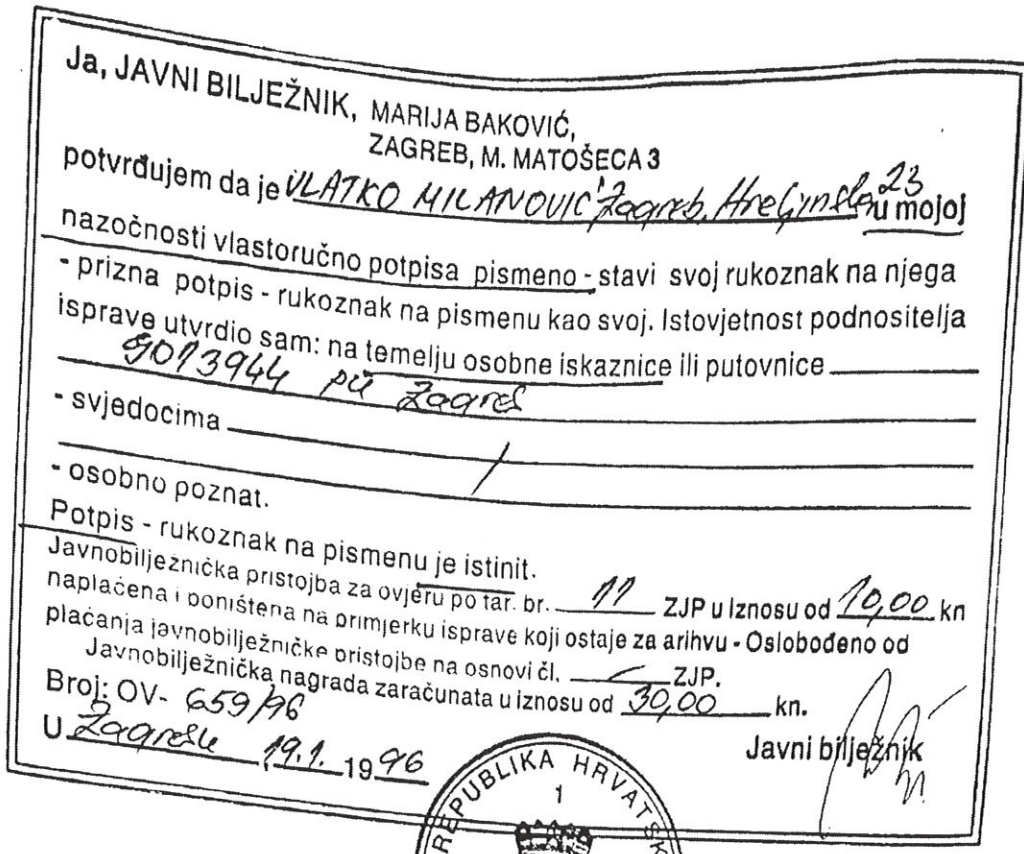 Ja, JAVNI BILJEŽNIK, MARIJA BAKOVIĆ,
ZAGREB, M. MATOŠECA 3
potvrđujem da je VLATKO MILANOVIĆ Zagreb, 23 u mojoj
nazočnosti vlastoručno potpisa pismeno - stavi svoj rukoznak na njega
- prizna potpis - rukoznak na pismenu kao svoj. Istovjetnost podnositelja
isprave utvrdio sam: na temelju osobne iskaznice ili putovnice
9013944 pu Zagreb
- svjedocima /
- osobno poznat.
Potpis - rukoznak na pismenu je istinit.
Javnobilježnička pristojba za ovjeru po tar. br. 11 ZJP u iznosu od 10,00 kn
naplaćena i poništena na primjerku isprave koji ostaje za arihvu - Oslobođeno od
plaćanja javnobilježničke pristojbe na osnovi čl. ZJP.
Javnobilježnička nagrada zaračunata u iznosu od 30,00 kn.
Broj: OV- 659/96
U Zagrebu, 19.1. 1996
Javni bilježnik
REPUBLIKA HRVATSK
1